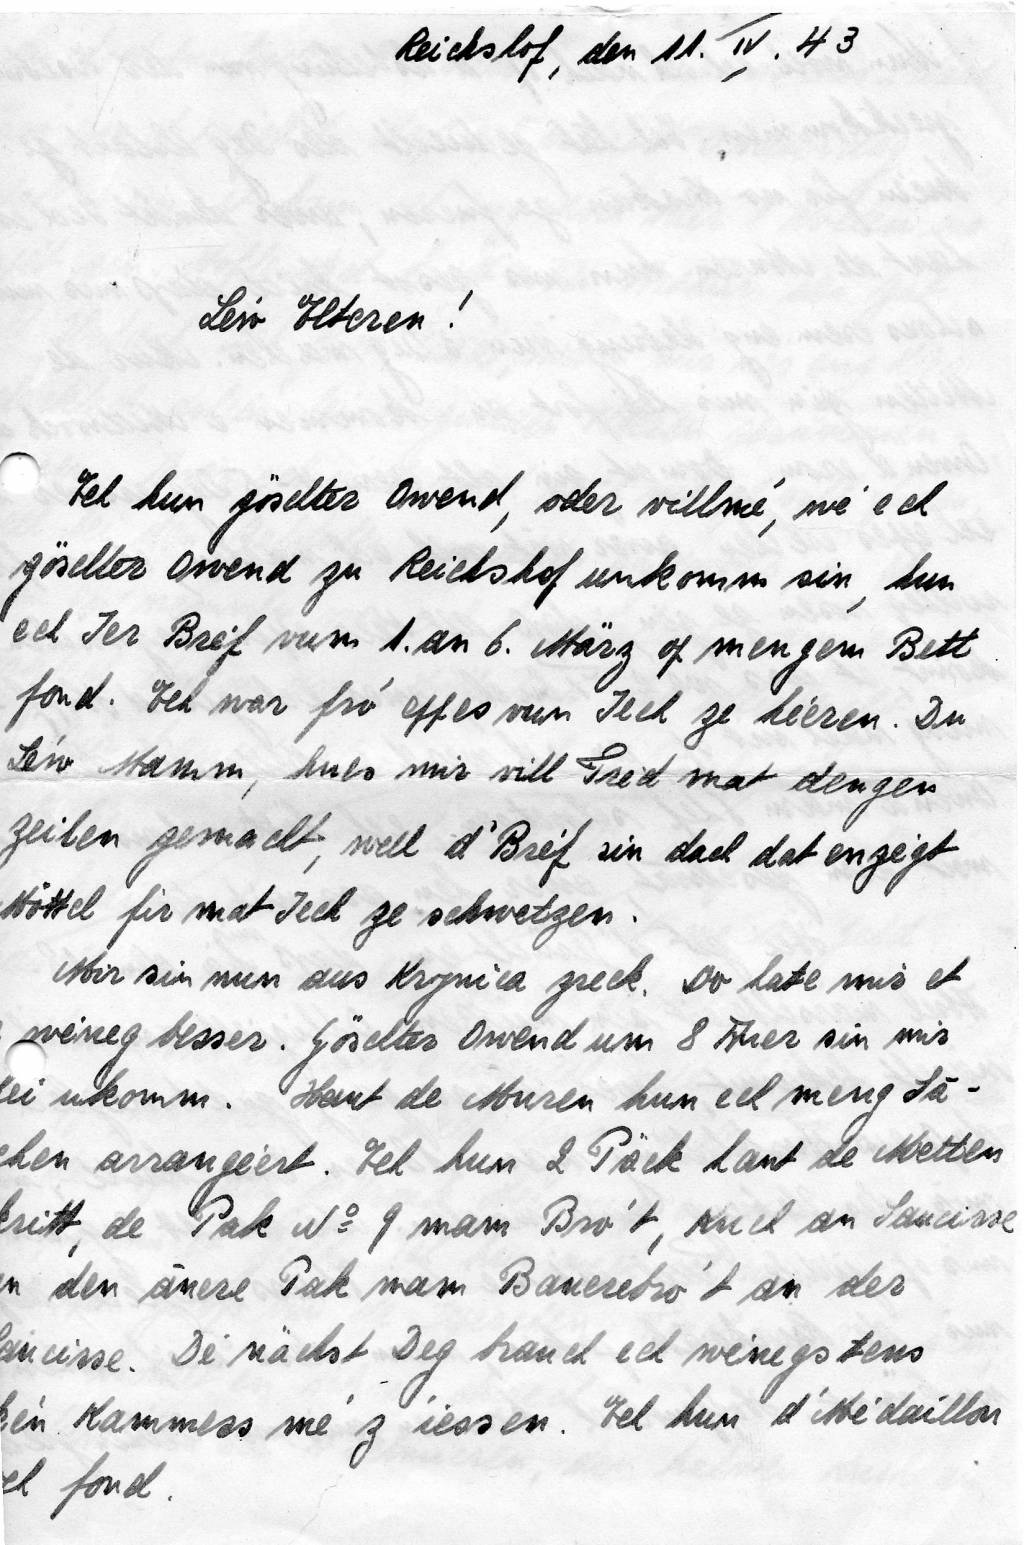 Reichshof, den 11. IV. 43
Léiw Elteren!
Ech hun göschter Owend, oder villmé, wé ech
göschter Owend zu Reichshof unkomm sin, hun
ech Ier Bréif vum 1. an 6. März op mengem Bett
fond. Ech war fró eppes vun Iech ze héieren. Du
Léiw Mamm, hues mir vill Fréd mat dengen
Zeilen gemacht, well d'Bréf sin dach dat enzegt
Möttel fir mat Iech ze schwetzen.
Mir sin nun aus Krynica zreck. Do hate mir et
wéineg besser. Göschter Owend um 8 Auer sin mir
hei ukomm. Haut de Muren hun ech meng Sä-
chen arrangéert. Ech hun 2 Päck haut de Metten
kritt, de Pak No 9 mam Bro't, Kuch an Saucisse
an den ānere Pak mam Bauerebro't an der
Saucisse. Dé nächst Deg brauch ech wéinegstens
kén Kammess mé z'iessen. Ech hun d'Médaillon
och fond.